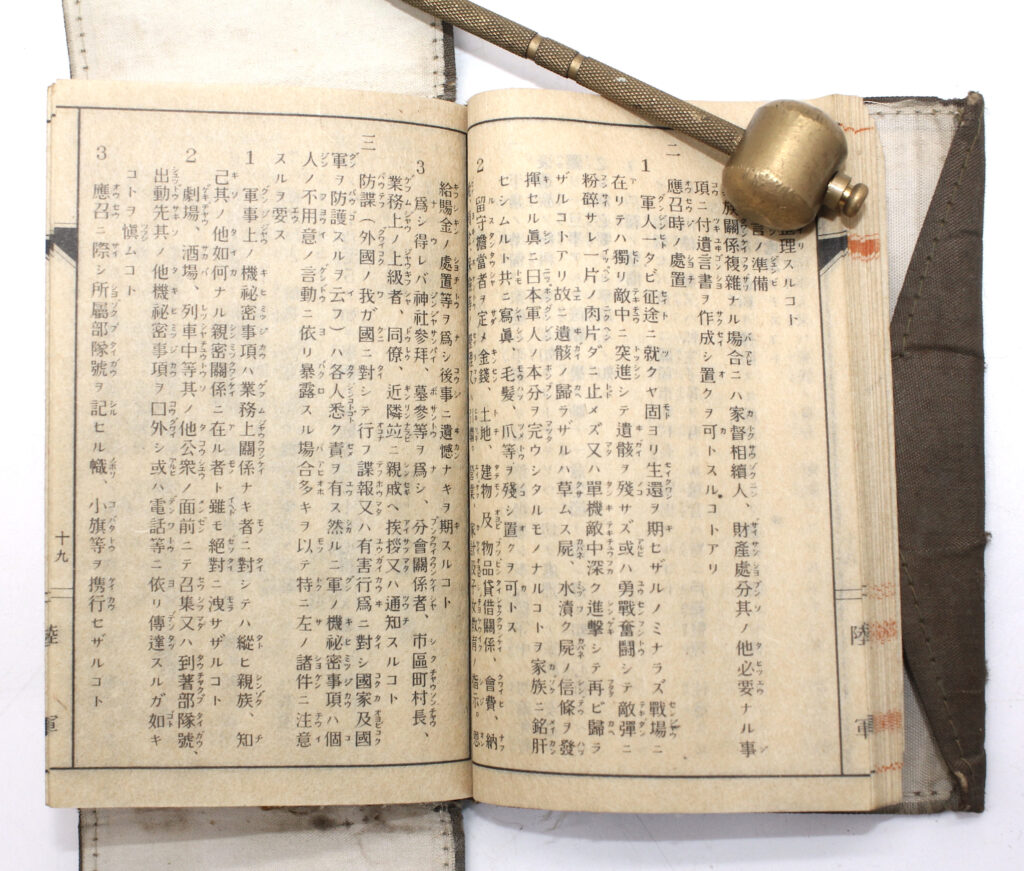 整理スルコト
言ノ準備
族關係複雜ナル場合ニハ家督相續人、財產處分其ノ他必要ナル事
項ニ付遺言書ヲ作成シ置クヲ可トスルコトアリ
二
應召時ノ處置
1 軍人一タビ征途ニ就クヤ固ヨリ生還ヲ期セザルノミナラズ戰場ニ
在リテハ獨リ敵中ニ突進シテ遺骸ヲ殘サズ或ハ勇戰奮鬪シテ敵彈ニ
粉碎サレ一片ノ肉片ダニ止メズ又ハ單機敵中深ク進擊シテ再ビ歸ラ
ザルコトアリ故ニ遺骸ノ歸ラザルハ草ムス屍、水漬ク屍ノ信條ヲ發
揮セル眞ニ日本軍人ノ本分ヲ完ウシタルモノナルコトヲ家族ニ銘肝
セシムルト共ニ寫眞、毛髮、爪等ヲ殘シ置クヲ可トス
2 留守擔當者ヲ定メ金錢、土地、建物及物品貸借關係、會費、納
陸軍
給賜金ノ處置等ヲ爲シ後事ニ遺憾ナキヲ期スルコト
3 爲シ得レバ神社參拜、墓參等ヲ爲シ、分會關係者、市區町村長、
業務上ノ上級者、同僚、近隣竝ニ親戚ヘ挨拶又ハ通知スルコト
三
防諜(外國ノ我ガ國ニ對シテ行フ諜報又ハ有害行爲ニ對シ國家及國
軍ヲ防護スルヲ云フ)ハ各人悉ク責ヲ有ス然ルニ軍ノ機祕密事項ハ個
人ノ不用意ノ言動ニ依リ暴露スル場合多キヲ以テ特ニ左ノ諸件ニ注意
スルヲ要ス
1 軍事上ノ機祕密事項ハ業務上關係ナキ者ニ對シテハ縱ヒ親族、知
己其ノ他如何ナル親密關係ニ在ル者ト雖モ絕對ニ洩サザルコト
2 劇場、酒場、列車中等其ノ他公衆ノ面前ニテ召集又ハ到著部隊號、
出動先其ノ他機祕密事項ヲ口外シ或ハ電話等ニ依リ傳達スルガ如キ
コトヲ愼ムコト
3 應召ニ際シ所屬部隊號ヲ記セル幟、小旗等ヲ携行セザルコト
十九
陸軍